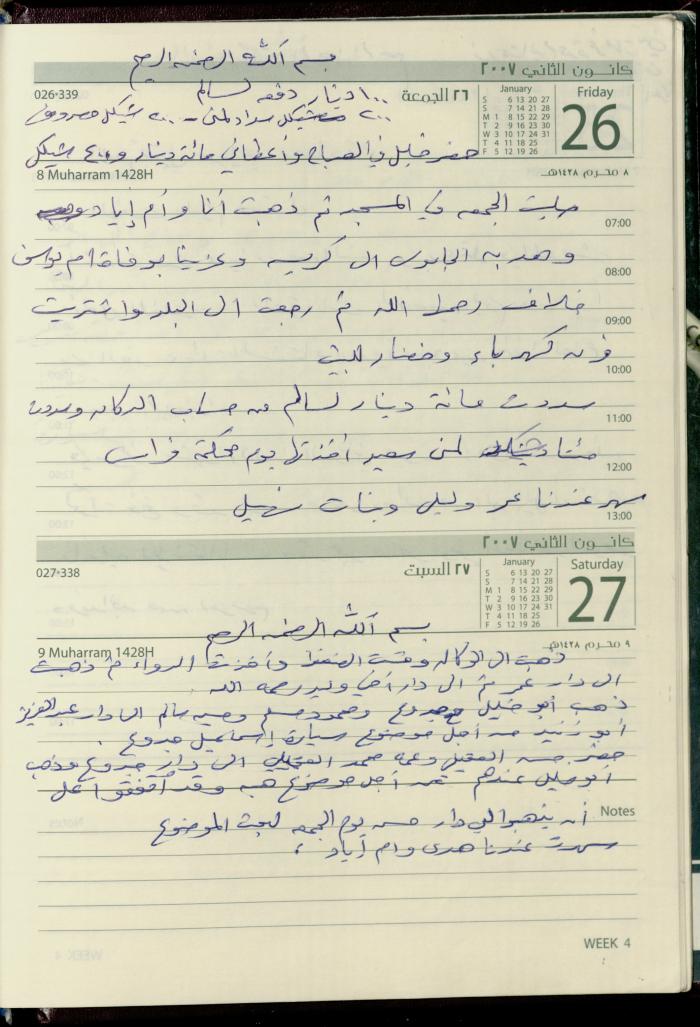 بسم الله الرحمن الرحيم
كانون الثاني ٢٠٠٧
026-339
٢٦ الجمعة
January
Friday
26
S 6 13 20 27
S 7 14 21 28
M 1 8 15 22 29
T 2 9 16 23 30
W 3 10 17 24 31
T 4 11 18 25
F 5 12 19 26
١٠٠ دينار دفعه لسالم
٢٠٠ شيكل سداد لمنى - ٢٠٠ شيكل مصروف
حضر خليل في الصباح وأعطاني مائة دينار و٤٠٠ شيكل
8 Muharram 1428H
٨ محرم ١٤٢٨هـ
صليت الجمعه في المسجد ثم ذهبت أنا وأم إياد
07:00
و الى وعزينا بوفاة ام يوسف
08:00
خلاف رحمها الله ثم رجعت الى البلد واشتريت
09:00
فرن كهرباء وخضار للبيت
10:00
سددت مائة دينار لسالم من حساب الدكان وسددت
11:00
مئتا شيكل لمنى سعيد اخذتها يوم محكمة فراس
12:00
سهر عندنا عمر وليلى وبنات نهيل
13:00
كانون الثاني ٢٠٠٧
027-338
٢٧ السبت
January
Saturday
27
S 6 13 20 27
S 7 14 21 28
M 1 8 15 22 29
T 2 9 16 23 30
W 3 10 17 24 31
T 4 11 18 25
F 5 12 19 26
بسم الله الرحمن الرحيم
9 Muharram 1428H
٩ محرم ١٤٢٨هـ
ذهبت الى الوكاله وقست الضغط وأخذت الدواء ثم ذهبت
الى دار عمر ثم الى دار أخي وليد رحمه الله
ذهب أبو خليل ومحمود مسلم وحسن سالم الى دار عبد العزيز
أبو زنيد من أجل موضوع سيارة إسماعيل جدوع .
حضر حسن العقيلي وعمه محمد العقيلي الى دار جدوع وذهب
ابو خليل عندهم من أجل موضوع هبه وقد أتفقوا على
Notes
أن يذهبوا الى دار حسن يوم الجمعه لبحث الموضوع
سهرت عندنا هدى وام أياد .
WEEK 4